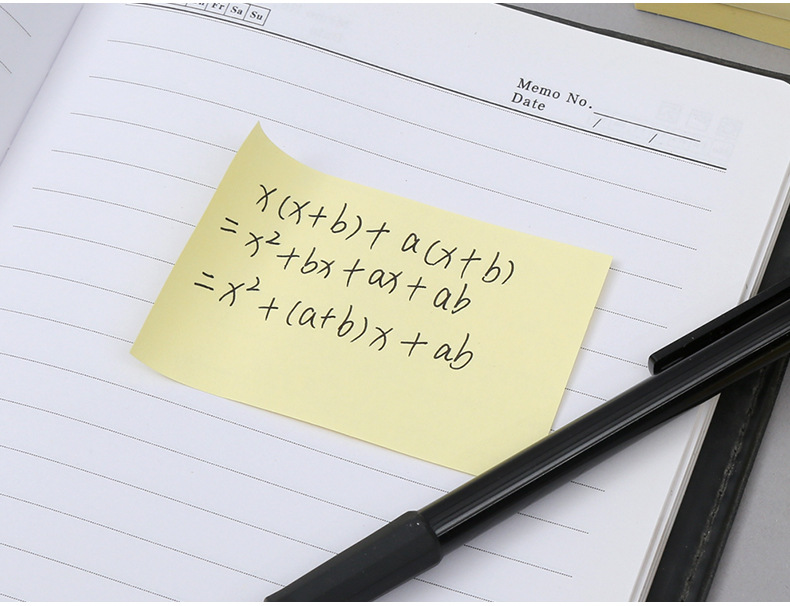 Fr Sa Su
Memo No.
Date / /
x(x+b)+a(x+b)
=x²+bx+ax+ab
=x²+(a+b)x+ab